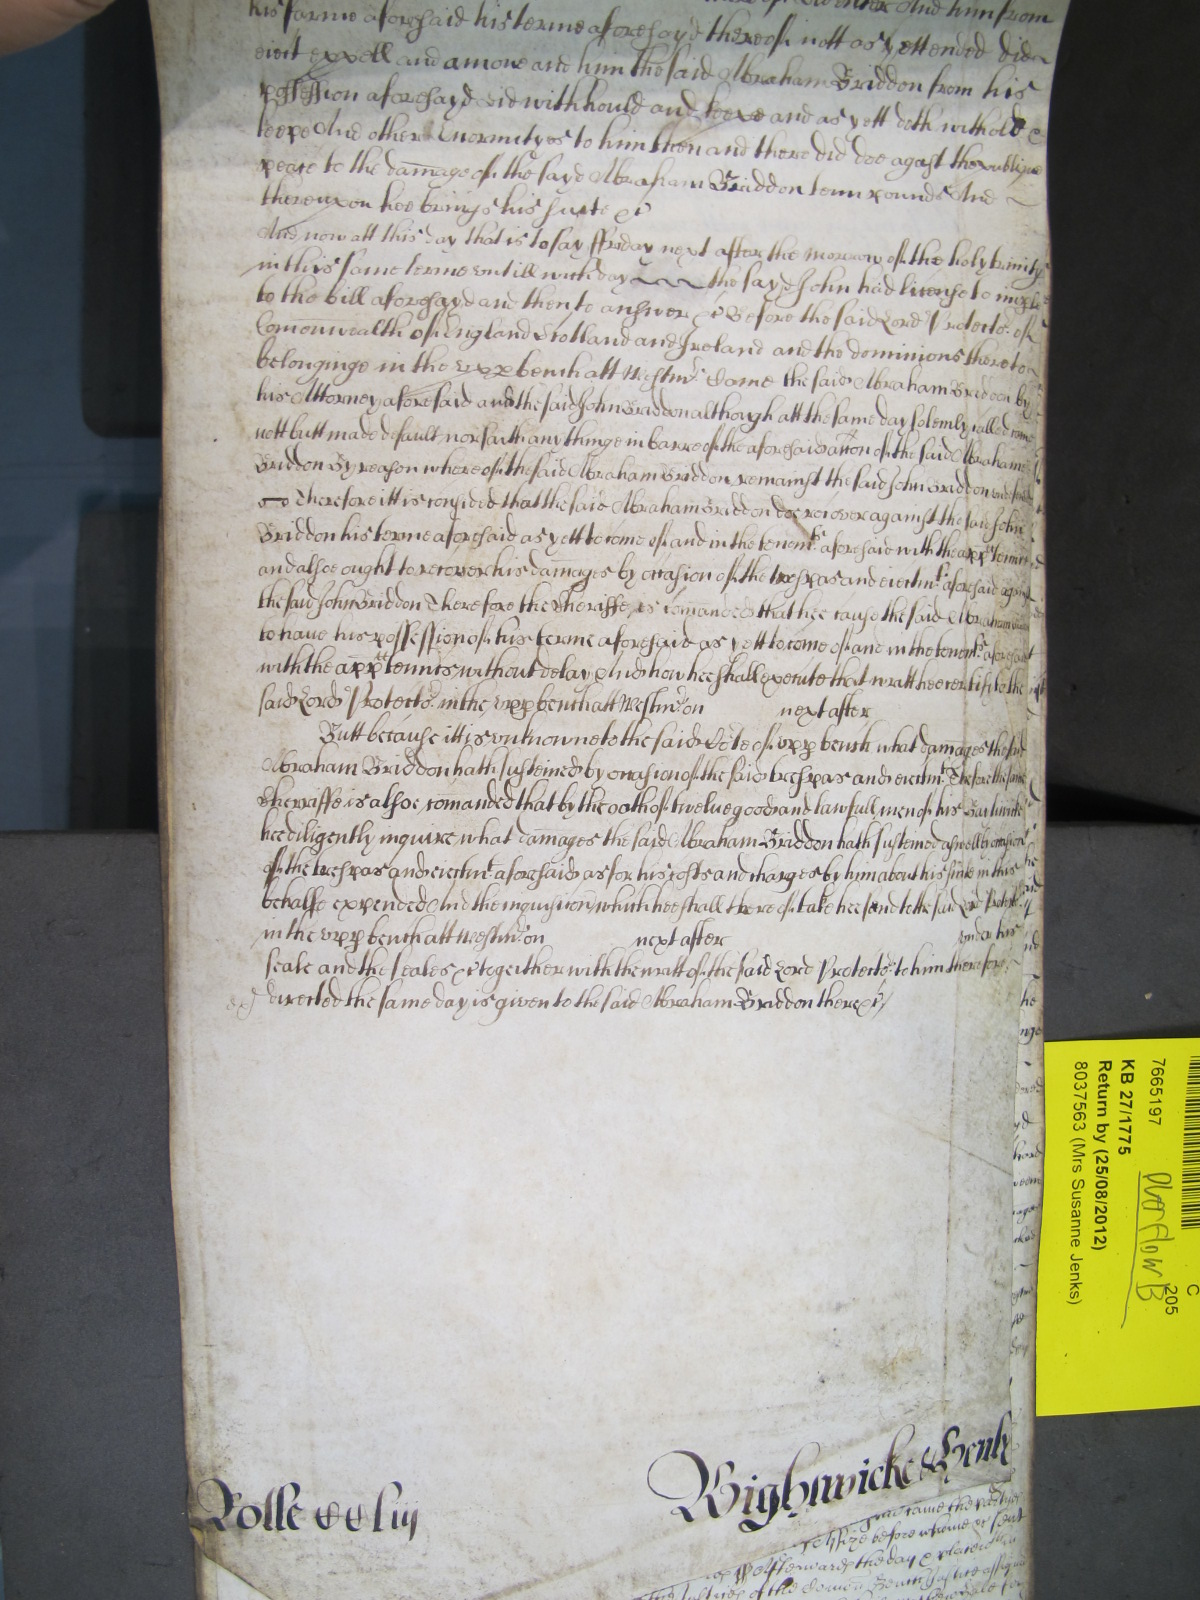 his farme aforesaid his terme aforesayd thereof nott as yett ended did
eiect expell and amove and him the said Abraham Briddon from his
possession aforesayd did withhould and keepe and as yett doth withold &
keepe And other Enormityes to him then and there did doe agast the publique
peace to the damage of the sayd Abraham Briddon tenn pounds And
thereupon hee brings his suite &c
And now att this day that is to say ffriday next after the morrow of the holy trinity
in this same terme untill which day the sayd John had license to imple
to the bill aforesayd and then to answer &c Before the said Lord Protector of
Comonwealth of England Scotland and Ireland and the dominions thereto
belonginge in the upp bench att Westmr Came the said Abraham Briddon by
his Attorney aforesaid and the said John Briddon although att the same day solemly called came
nott butt made default nor saith any thinge in barre of the aforesaid accon of the said Abraham
Briddon By reason whereof the said Abraham Briddon remainst the said John Briddon
Therefore itt is consided that the said Abraham Briddon doe recover against the said John
Briddon his terme aforesaid as yett to come of and in the tenemts aforesaid with the appten
and alsoe ought to recover his damages by occasion of the trespas and eiectmt aforesaid against
the said John Briddon Therefore the Sheriffe is comanded that hee cause the said Abraham
to have his possession of his terme aforesaid as yett to come of and in the tenemts aforesaid
with the apptennts without delay And how hee shall execute that writt hee certify to the
said Lord Protector in the upp bench att Westmr on next after
Butt because itt is unknowne to the said Cte of upp bench what damages the said
Abraham Briddon hath susteined by occasion of the said trespas and eiectmt Therefore the same
Sherriffe is alsoe comanded that by the ooth of twelve good and lawfull men of his Bailiwicke
hee diligently inquire what damages the said Abraham Briddon hath susteined aswell by occasion
of the trespas and eiectmt aforesaid as for his costs and charges by him about his suite in this
behalfe expended And the inquisicon which hee shall thereof take hee send to the said Lord Protector
in the upp bench att Westmr on next after under his
seale and the seales &c together with the writt of the said Lord Protector to him therefore
directed the same day is given to the said Abraham Briddon there &c
Rolle CCliij
Wightwicke &
C
205
7665197
Overflow B
KB 27/1775
Return by (25/08/2012)
8037563 (Mrs Susanne Jenks)